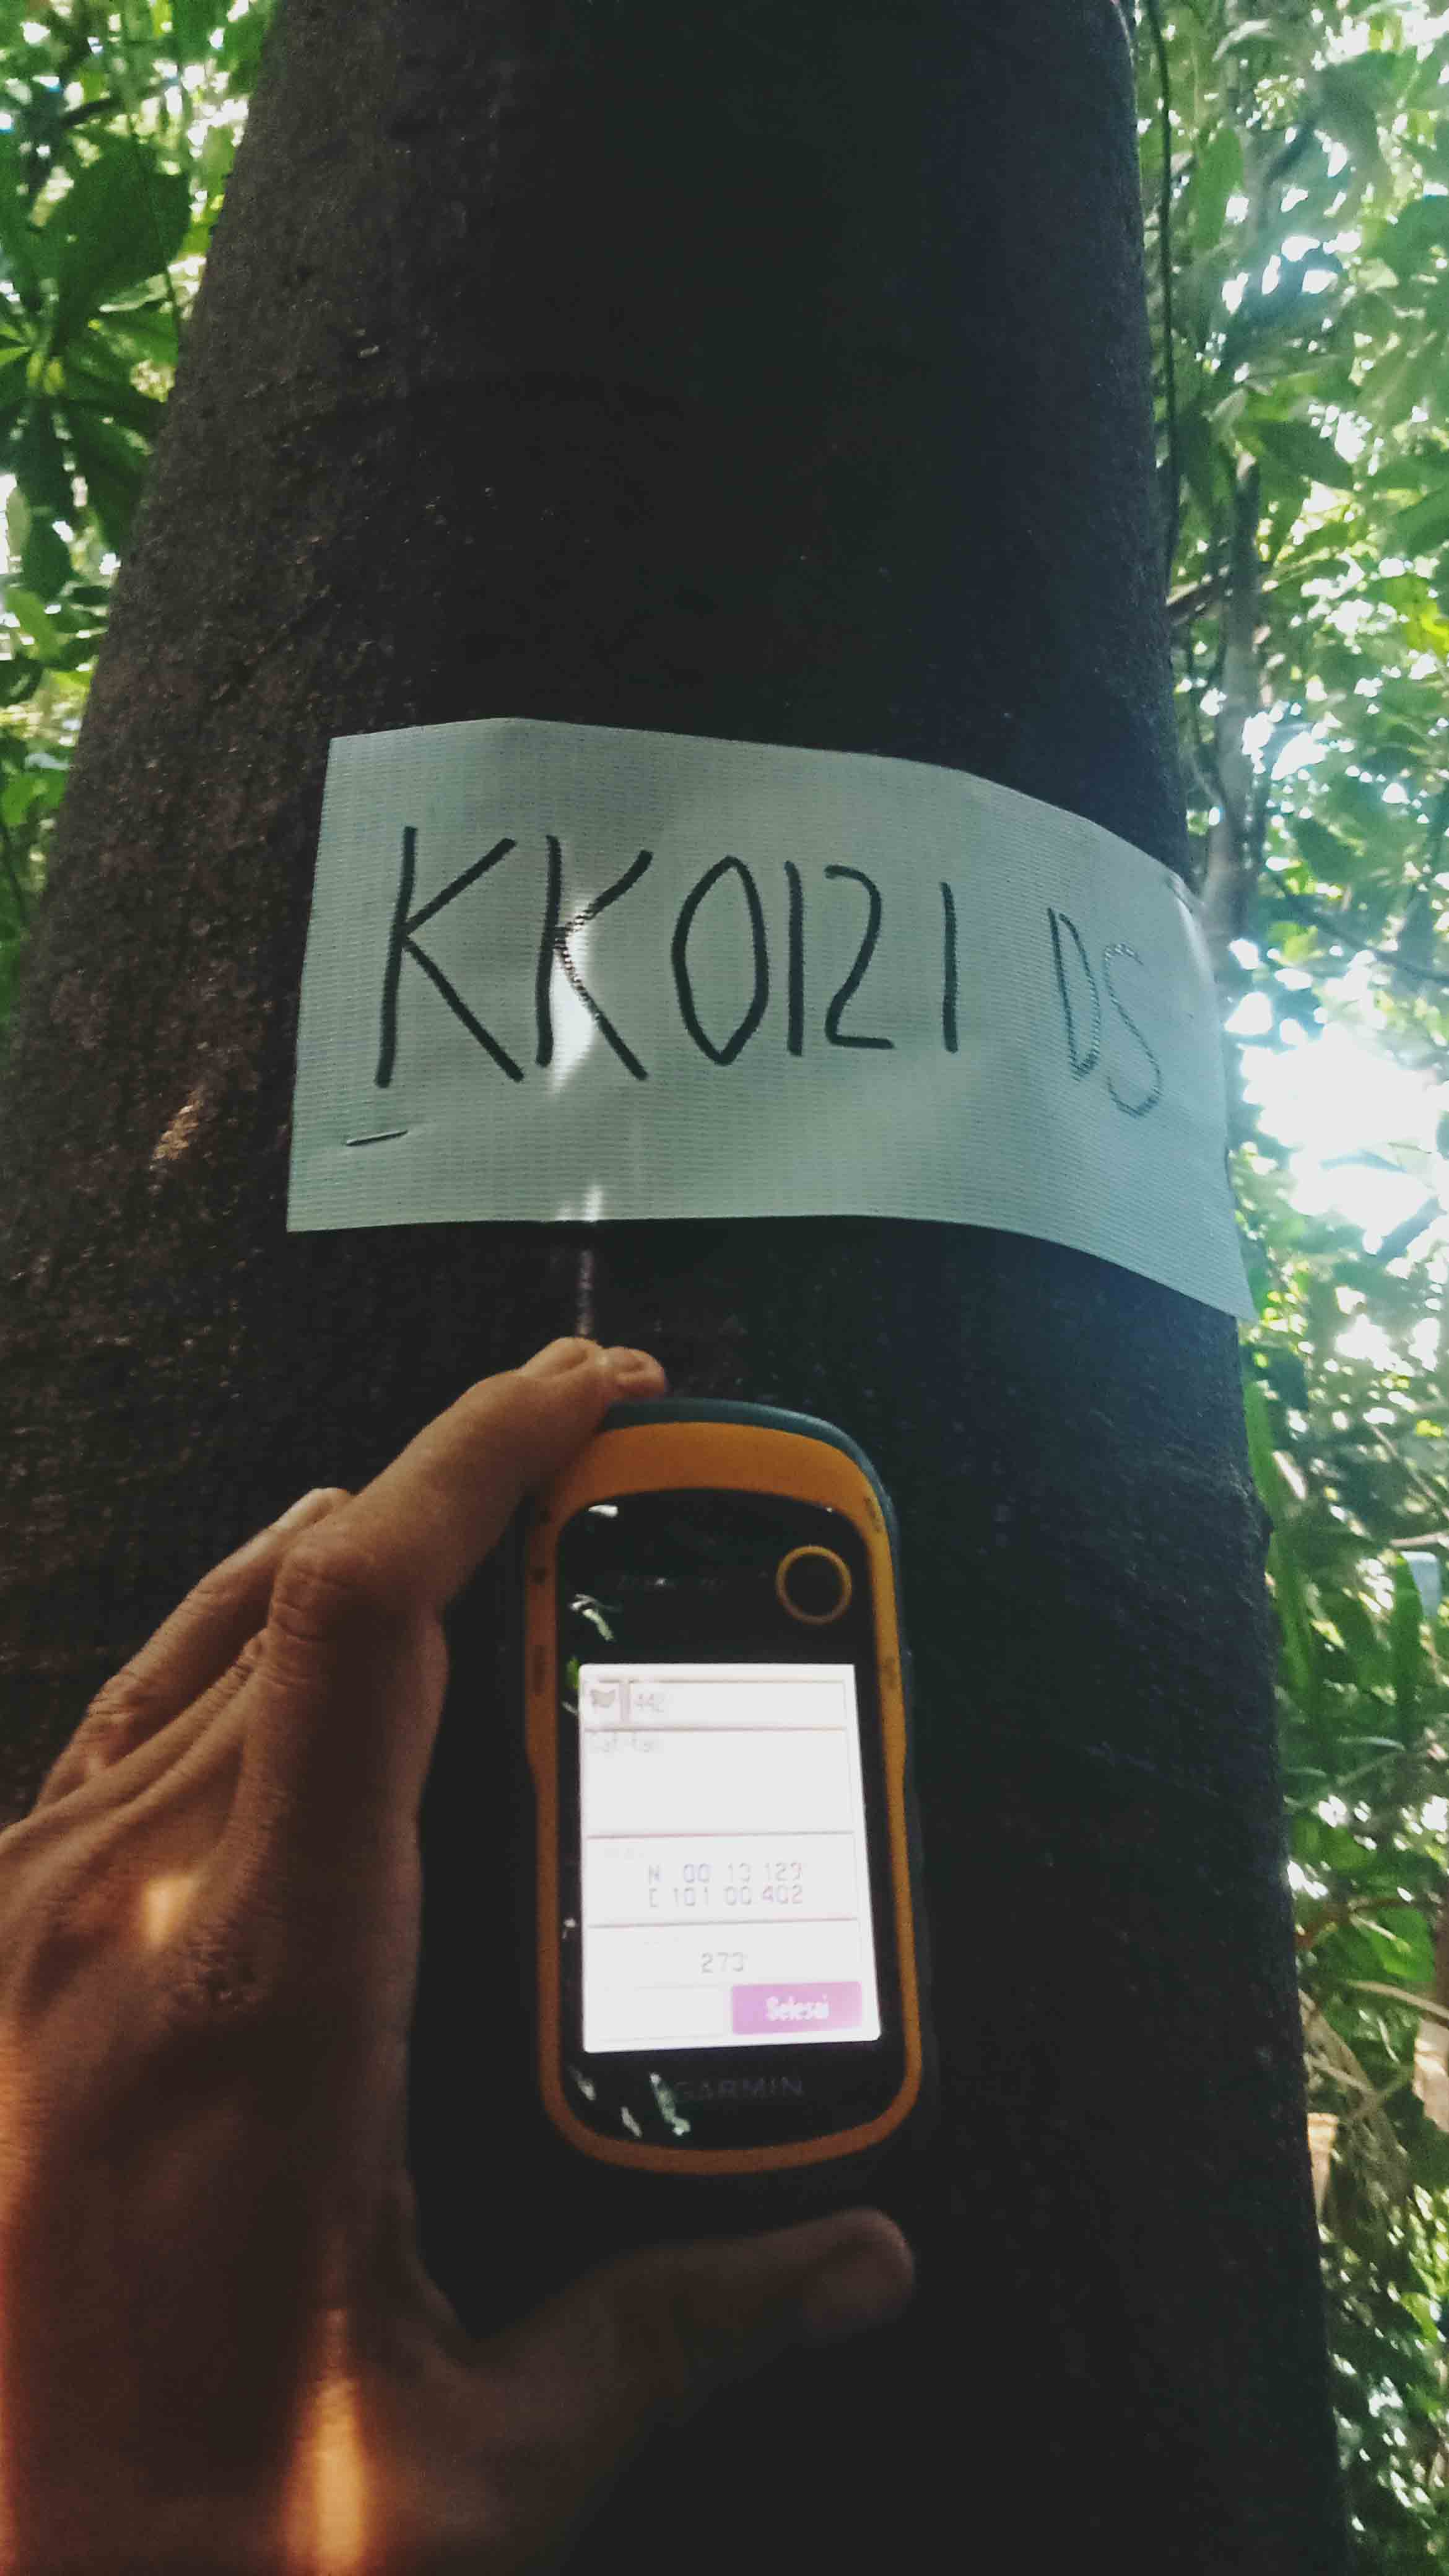 KK0121 DS
442
Catatan
N 00 13.129
E 101 00.402
273
Selesai
GARMIN